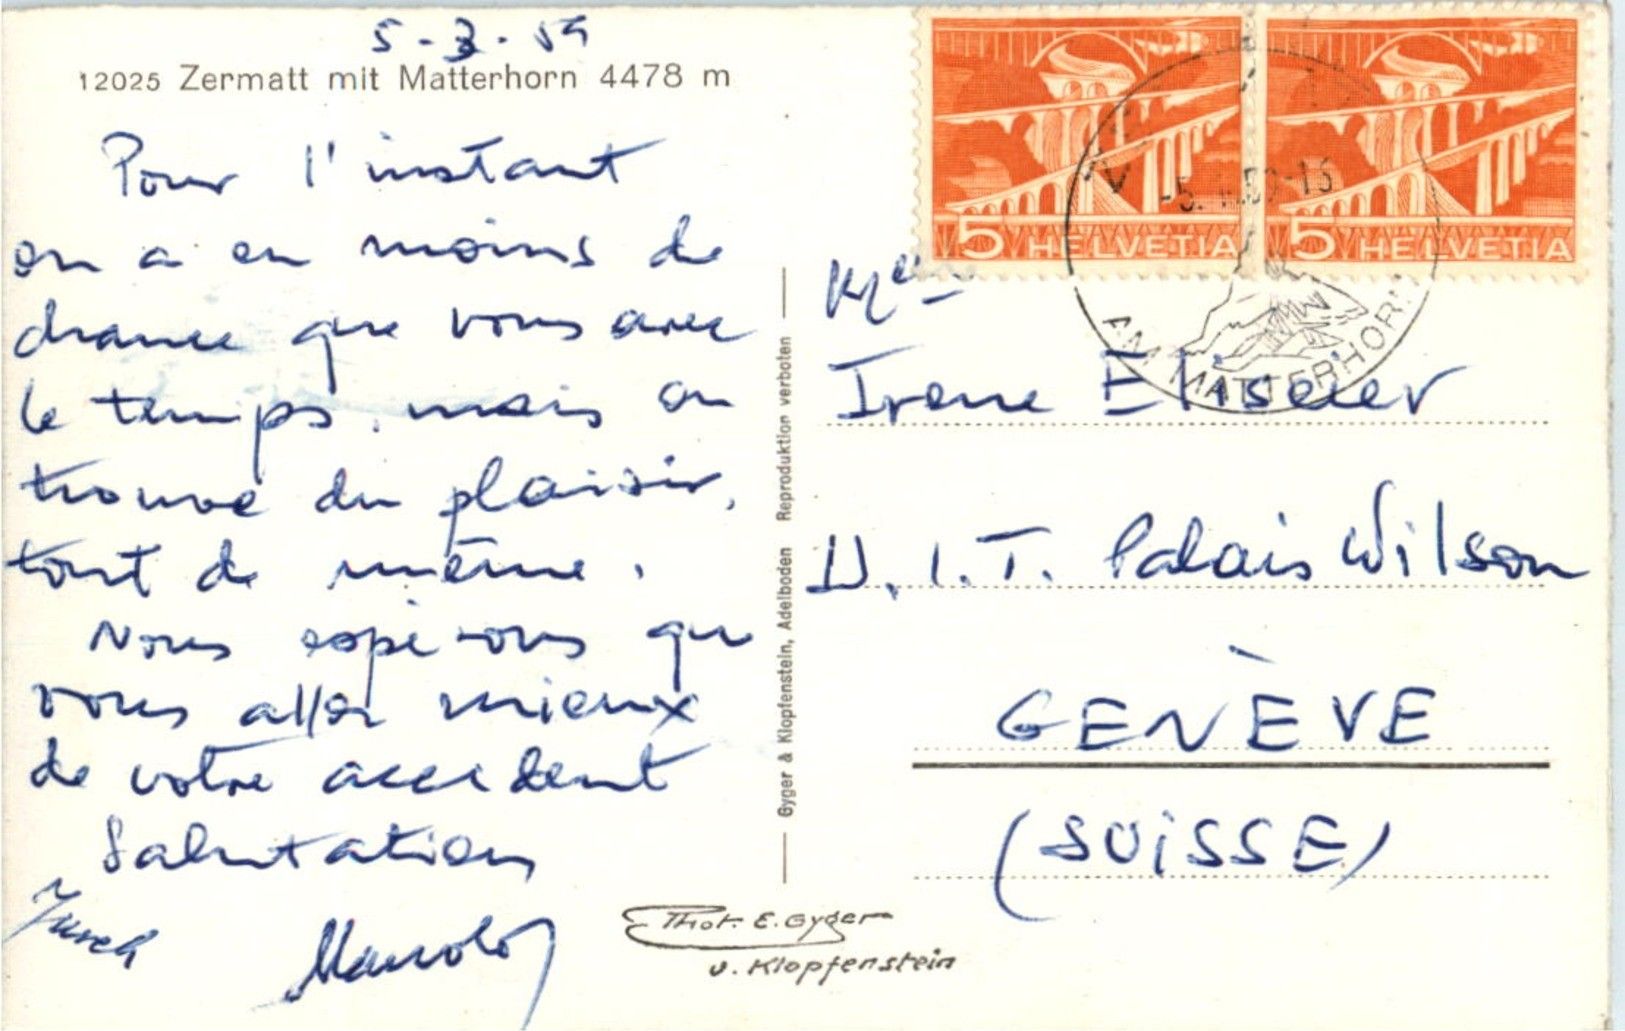 5-3-59
12025 Zermatt mit Matterhorn 4478 m
Pour l'instant
on a eu moins de
chance que vous avec
le temps, mais on
trouve du plaisir,
tout de même.
Nous espérons que
vous allez mieux
de votre accident
Salutations
Manolo
Phot. E. Gyger
u. Klopfenstein
Gyger & Klopfenstein, Adelboden Reproduktion verboten
5 HELVETIA
5 HELVETIA
AM MATTERHORN
Melle
Irene Elsener
U.I.T. Palais Wilson
GENÈVE
(SUiSSE)